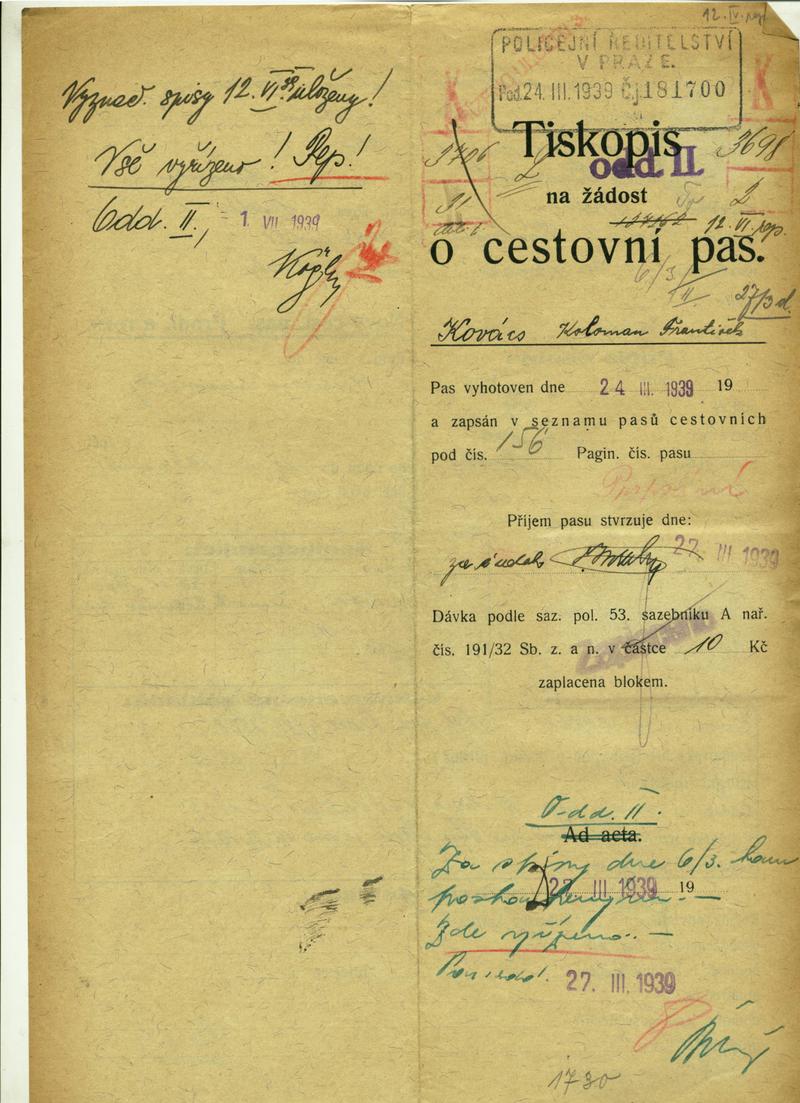 Vyznač. spisy 12. VI. 39 uloženy!
Vše vyřízeno! Pep!
Odd. II,
1 VII 1939
12. IV. rep
POLICEJNÍ ŘEDITELSTVÍ
V PRAZE.
Pod. 24. III. 1939 Čj. 181700
3698
Tiskopis
odd. II.
na žádost
2
12. VI. rep.
o cestovní pas.
6/3
27/3 d.
Kovács Koloman František
Pas vyhotoven dne 24 III. 1939 19
a zapsán v seznamu pasů cestovních
pod čís. 156 Pagin. čís. pasu
Příjem pasu stvrzuje dne:
27 III 1939
Dávka podle saz. pol. 53. sazebníku A nař.
čís. 191/32 Sb. z. a n. v částce 10 Kč
zaplacena blokem.
Odd. II.
Ad acta.
Za dne 6/3.
27 III 1939 19
Zde vyřízeno. —
27. III. 1939
1730